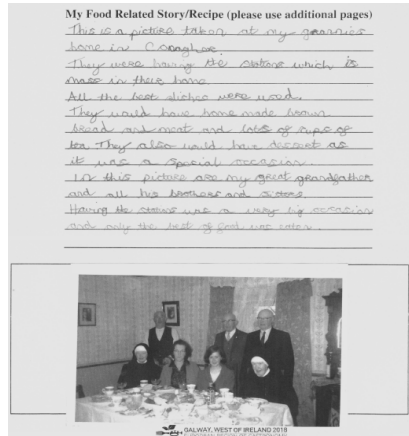 My Food Related Story/Recipe (please use additional pages)
This is a picture taken at my grannies
home in
They were having the stations which is
mass in their home
All the best dishes were used.
They would have home made brown
bread and meat and lots of cups of
tea They also would have dessert as
it was a special occasion
In this picture are my great grandfather
and all his brothers and sisters
Having the stations was a very big occasion
and only the best of food was eaten.
GALWAY, WEST OF IRELAND 2018